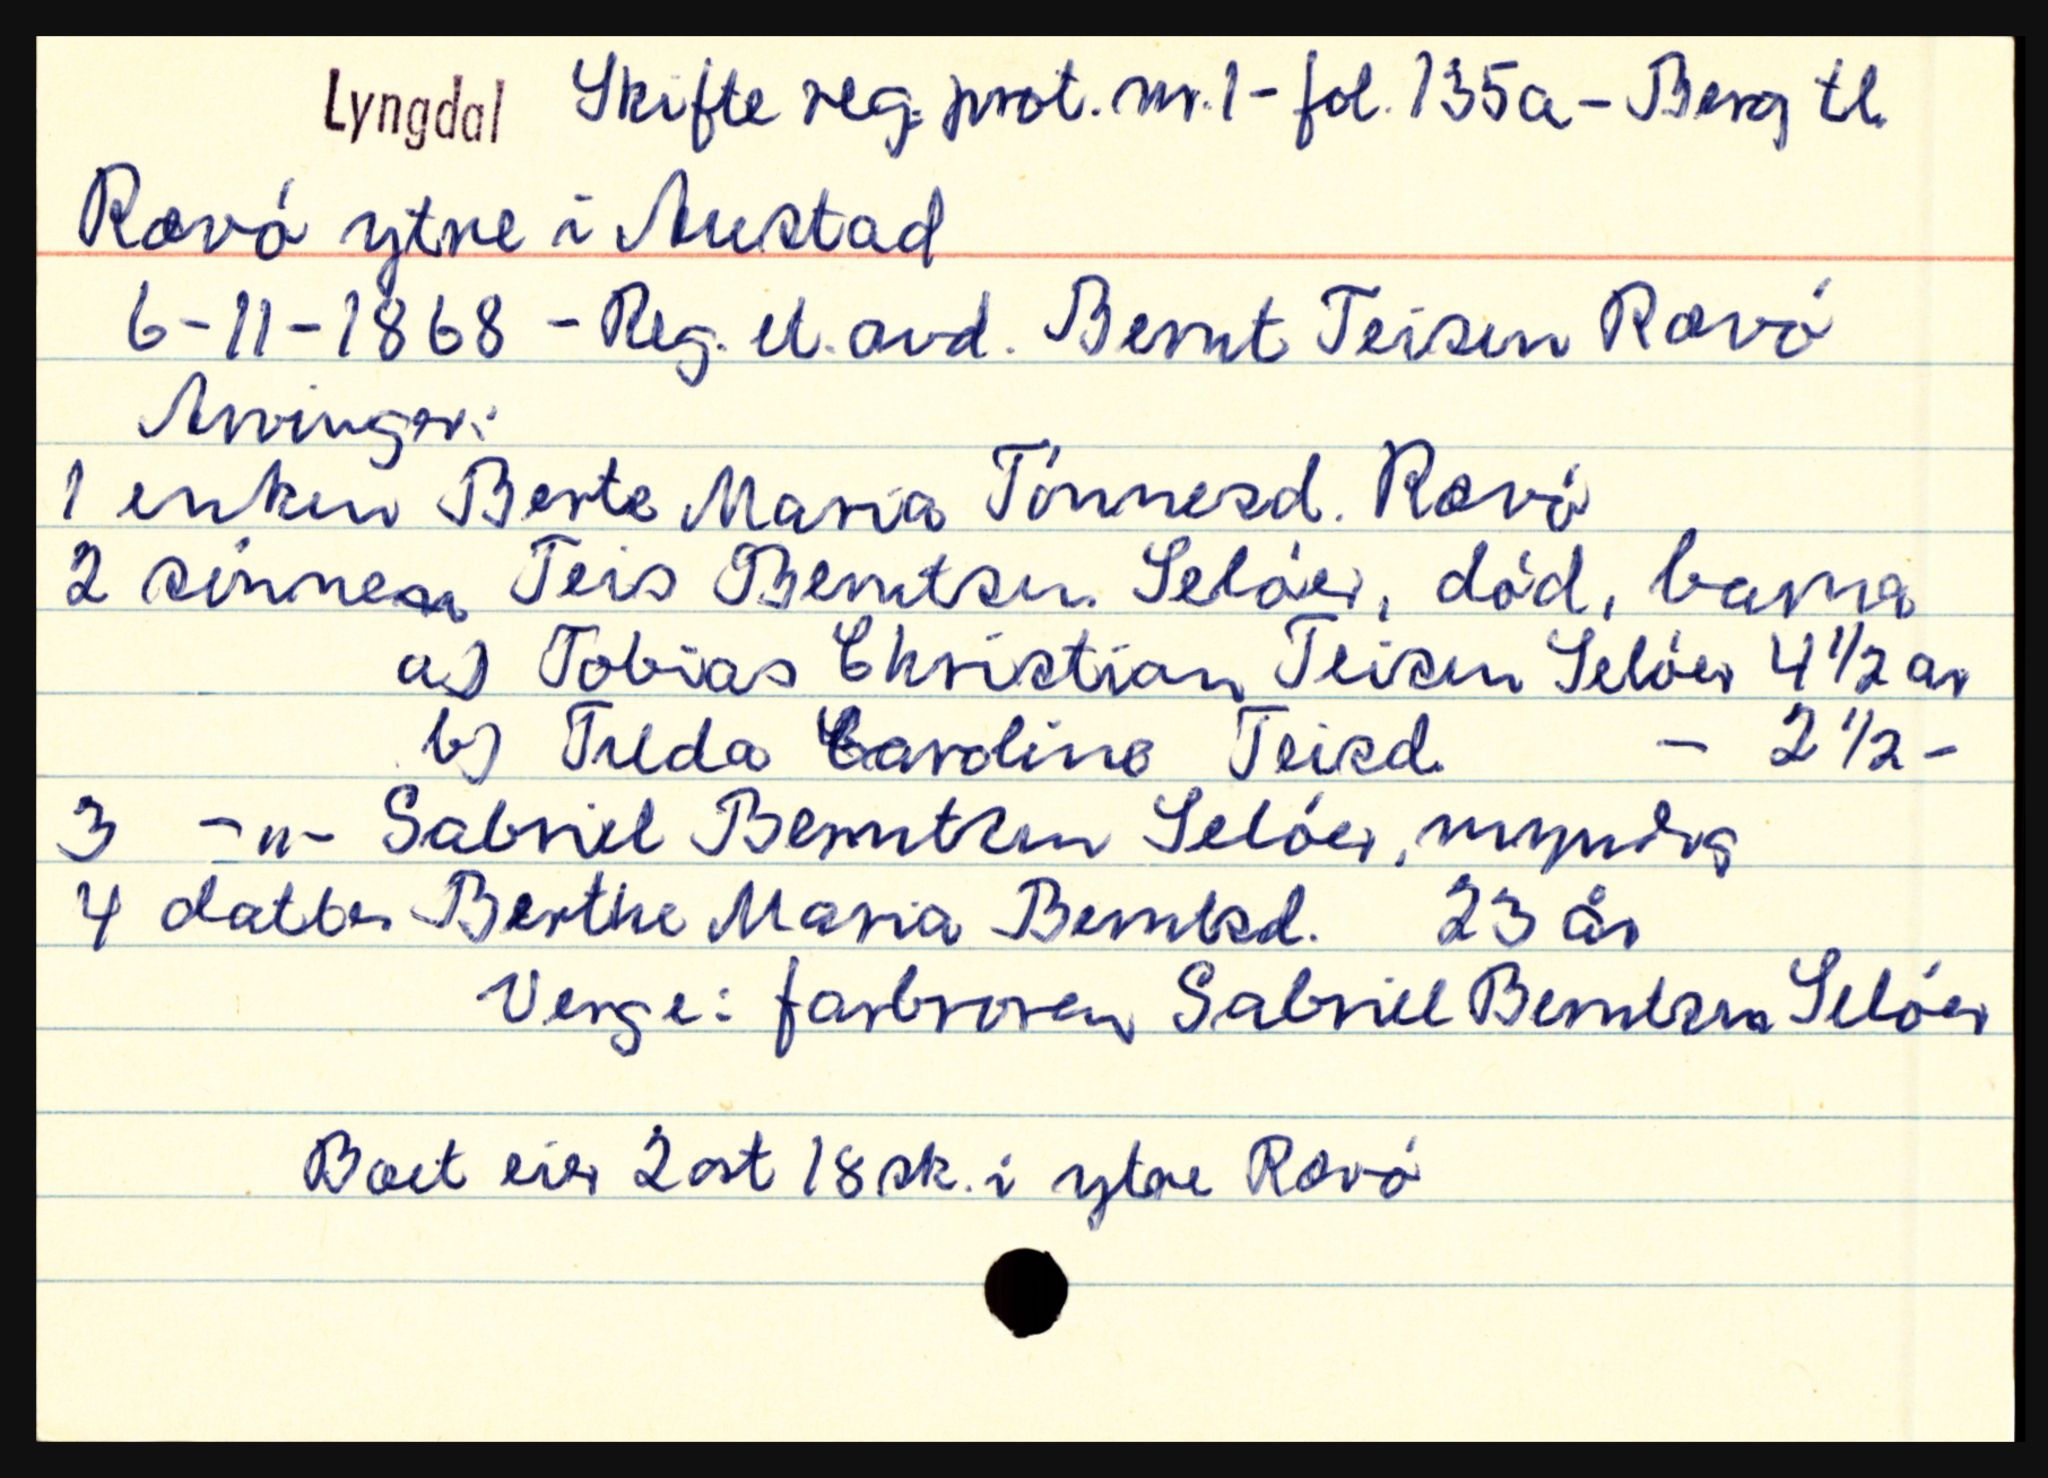 Lyngdal Skifte reg. prot. nr. 1 - fol. 135a - Berg tl.
Rævó ytre i Austad
6-11-1868 - Reg. et. avd. Bernt Teisen Rævó
Arvinger:
1 enken Berte Maria Tónnesd. Rævó
2 sónnen Teis Berntsen Selóer, dód, barna
a) Tobias Christian Teisen Selóer 4 1/2 år
b) Tilda Caroline Teisd. - 2 1/2 -
3 -"- Gabriel Berntsen Selóer, myndig
4 datter Berthe Maria Berntsd. 23 år
Verge: farbroren Gabriel Berntsen Selóer
Boet eier 2 ort 18 sk. i ytre Rævó